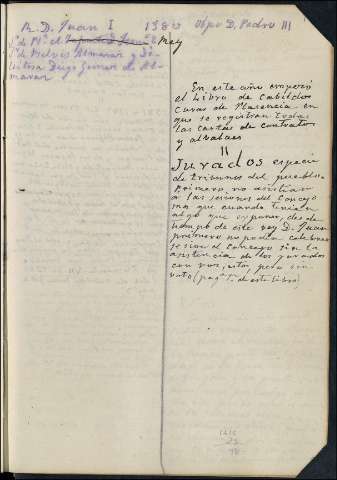 R. D. Juan I 1380 Obpo D. Pedro III
Sr. de Belvis Almaraz y Di-
Diego Gomez de Al-
maraz
En este año empezó
el Libro de Cabildos
Curas de Plasencia en
que se registran todas
las cartas de contratos
y albalaes
II
Jurados especie
de tribunos del pueblo
Primero no asistian
a las sesiones del Concejo
mas que cuando tenian
algo que exponer, desde
tiempo de este rey D. Juan
primero no podia celebrar
sesion el Concejo sin la
asistencia de los jurados
con voz, estos pero sin
voto (pagª 1ª de este libro)